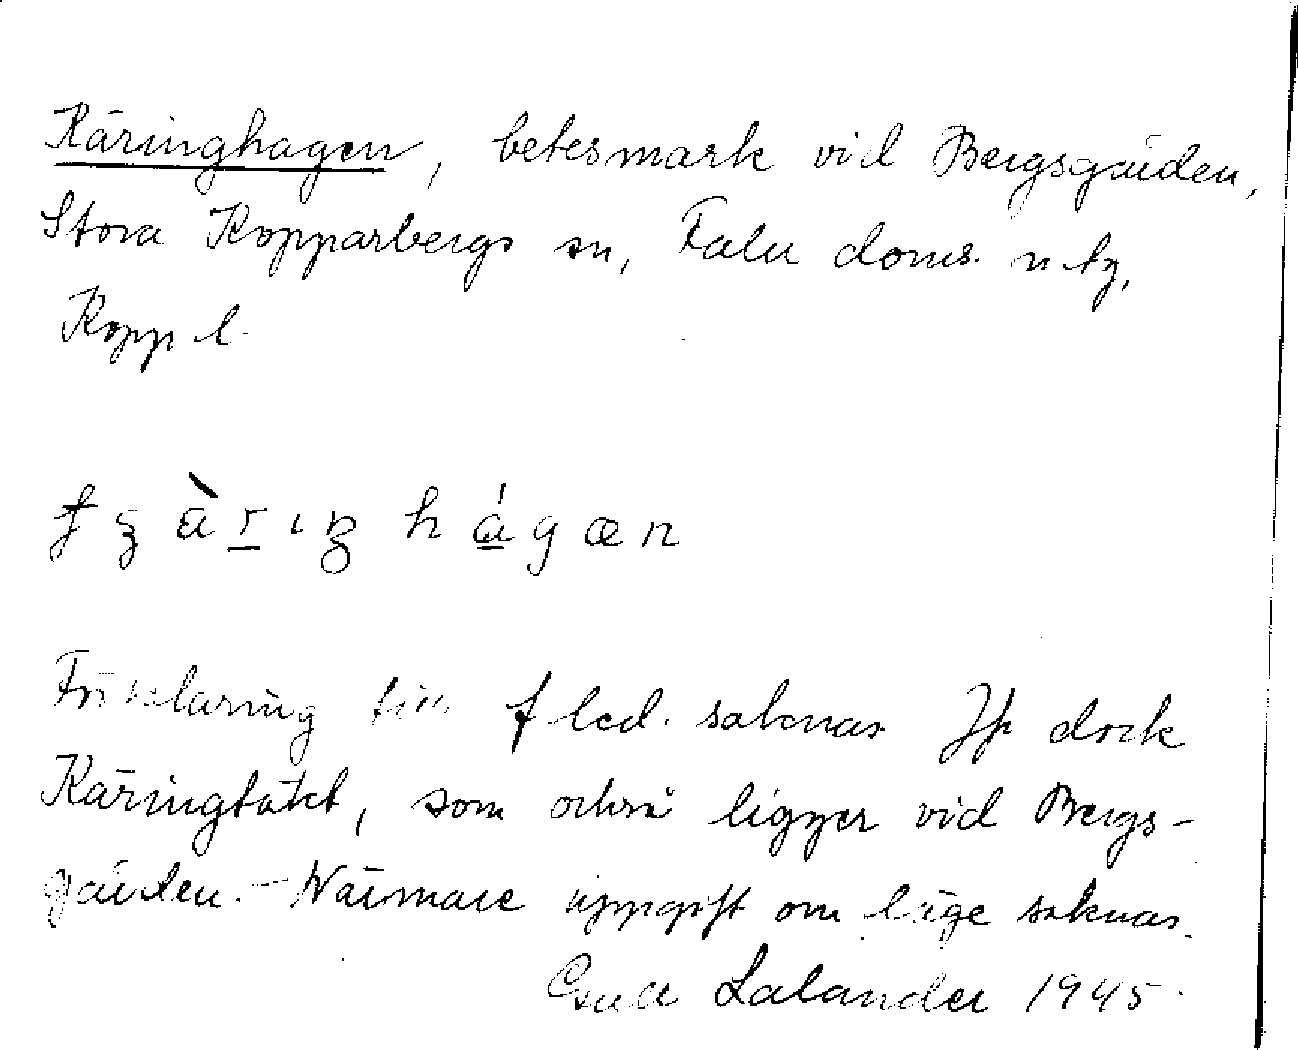 Käringhagen, betesmark vid Bergsgården,
Stora Kopparbergs sn, Falu doms. n tg,
Kopp l.
hagæn
Förklaring till f led. saknas Jfr dock
Käringtäkt, som också ligger vid Bergs-
gården. - Närmare uppgift om läge saknas.
Lalander 1945.